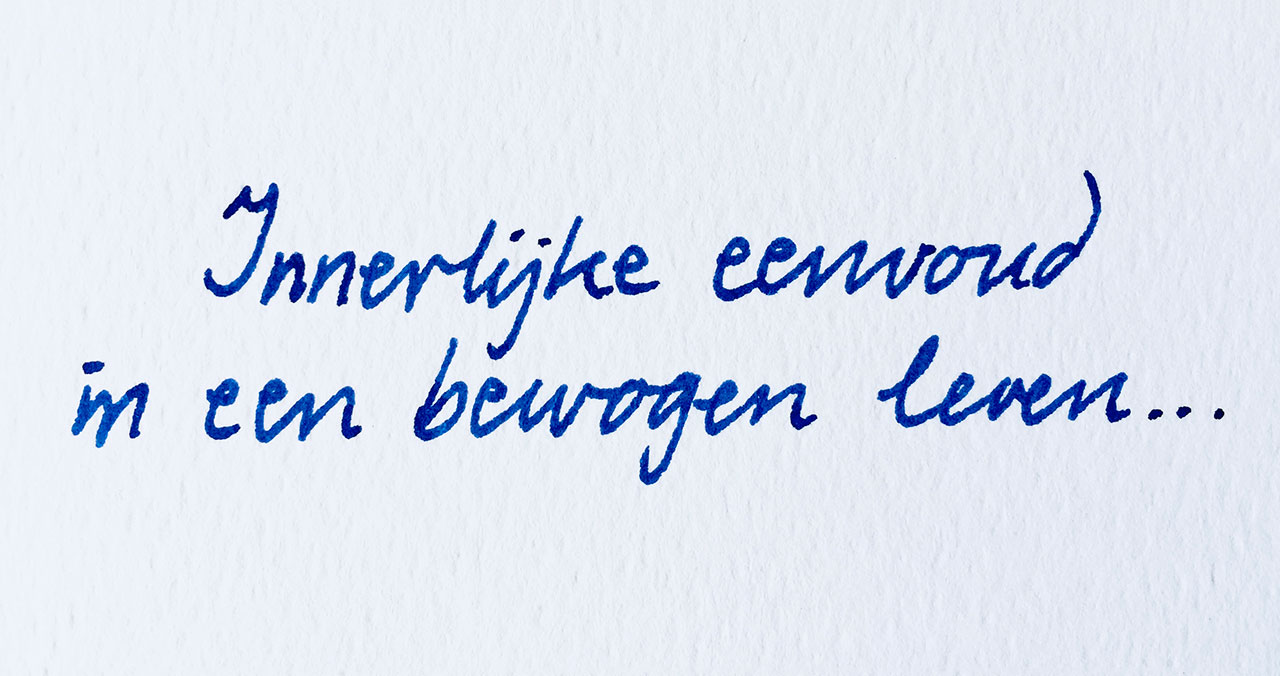 Innerlijke eenvoud
in een bewogen leven...